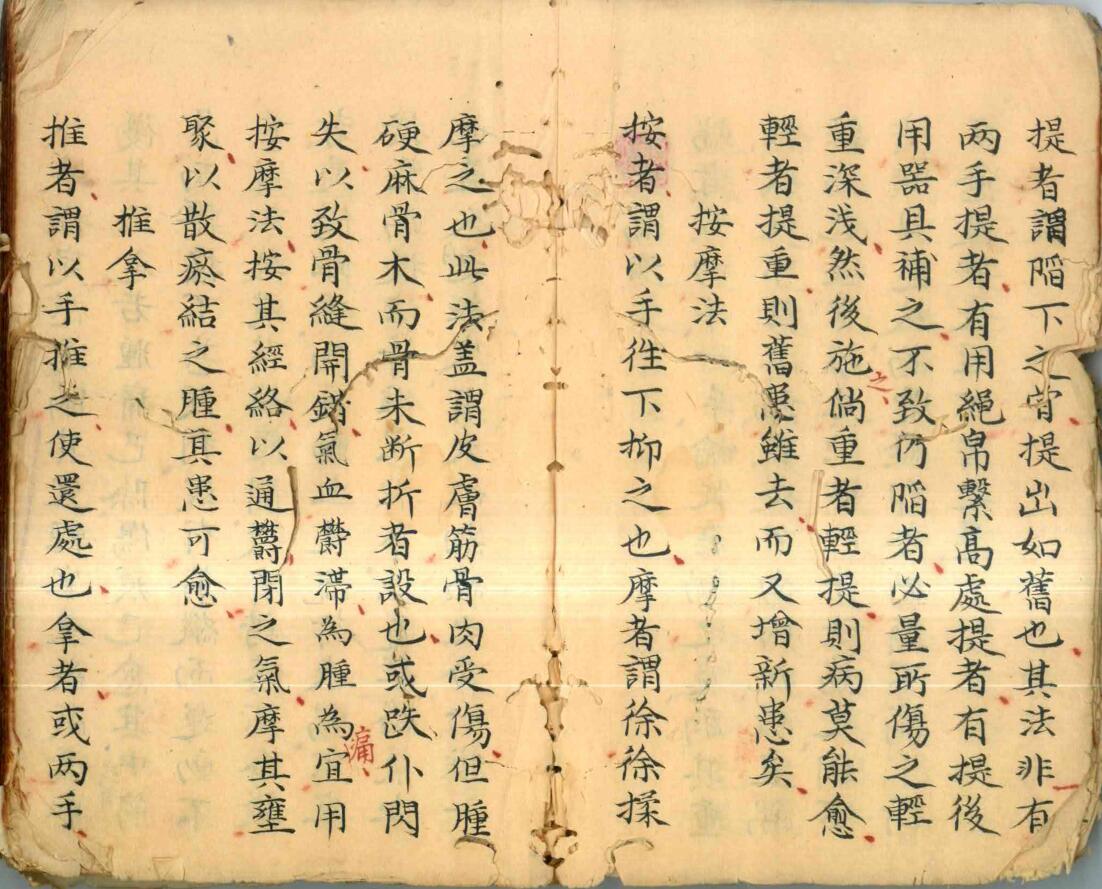 提者謂陷下之骨提出如舊也其法非有
两手提者有用繩帛繫高處提者有提後
用器具補之不致仍陷者必量所傷之輕
重深浅然後施之倘重者輕提則病莫能愈
輕者提重則舊患雖去而又增新患矣
按摩法
按者謂以手徃下抑之也摩者謂徐徐揉
摩之也此法盖謂皮膚筋骨肉受傷但腫
硬麻骨木而骨未断折者設也或跌仆閃
失以致骨縫開錯氣血欝滞為腫為痛宜用
按摩法按其經絡以通欝閉之氣摩其壅
聚以散瘀結之腫其患可愈
推拿
推者謂以手推之使還處也拿者或两手